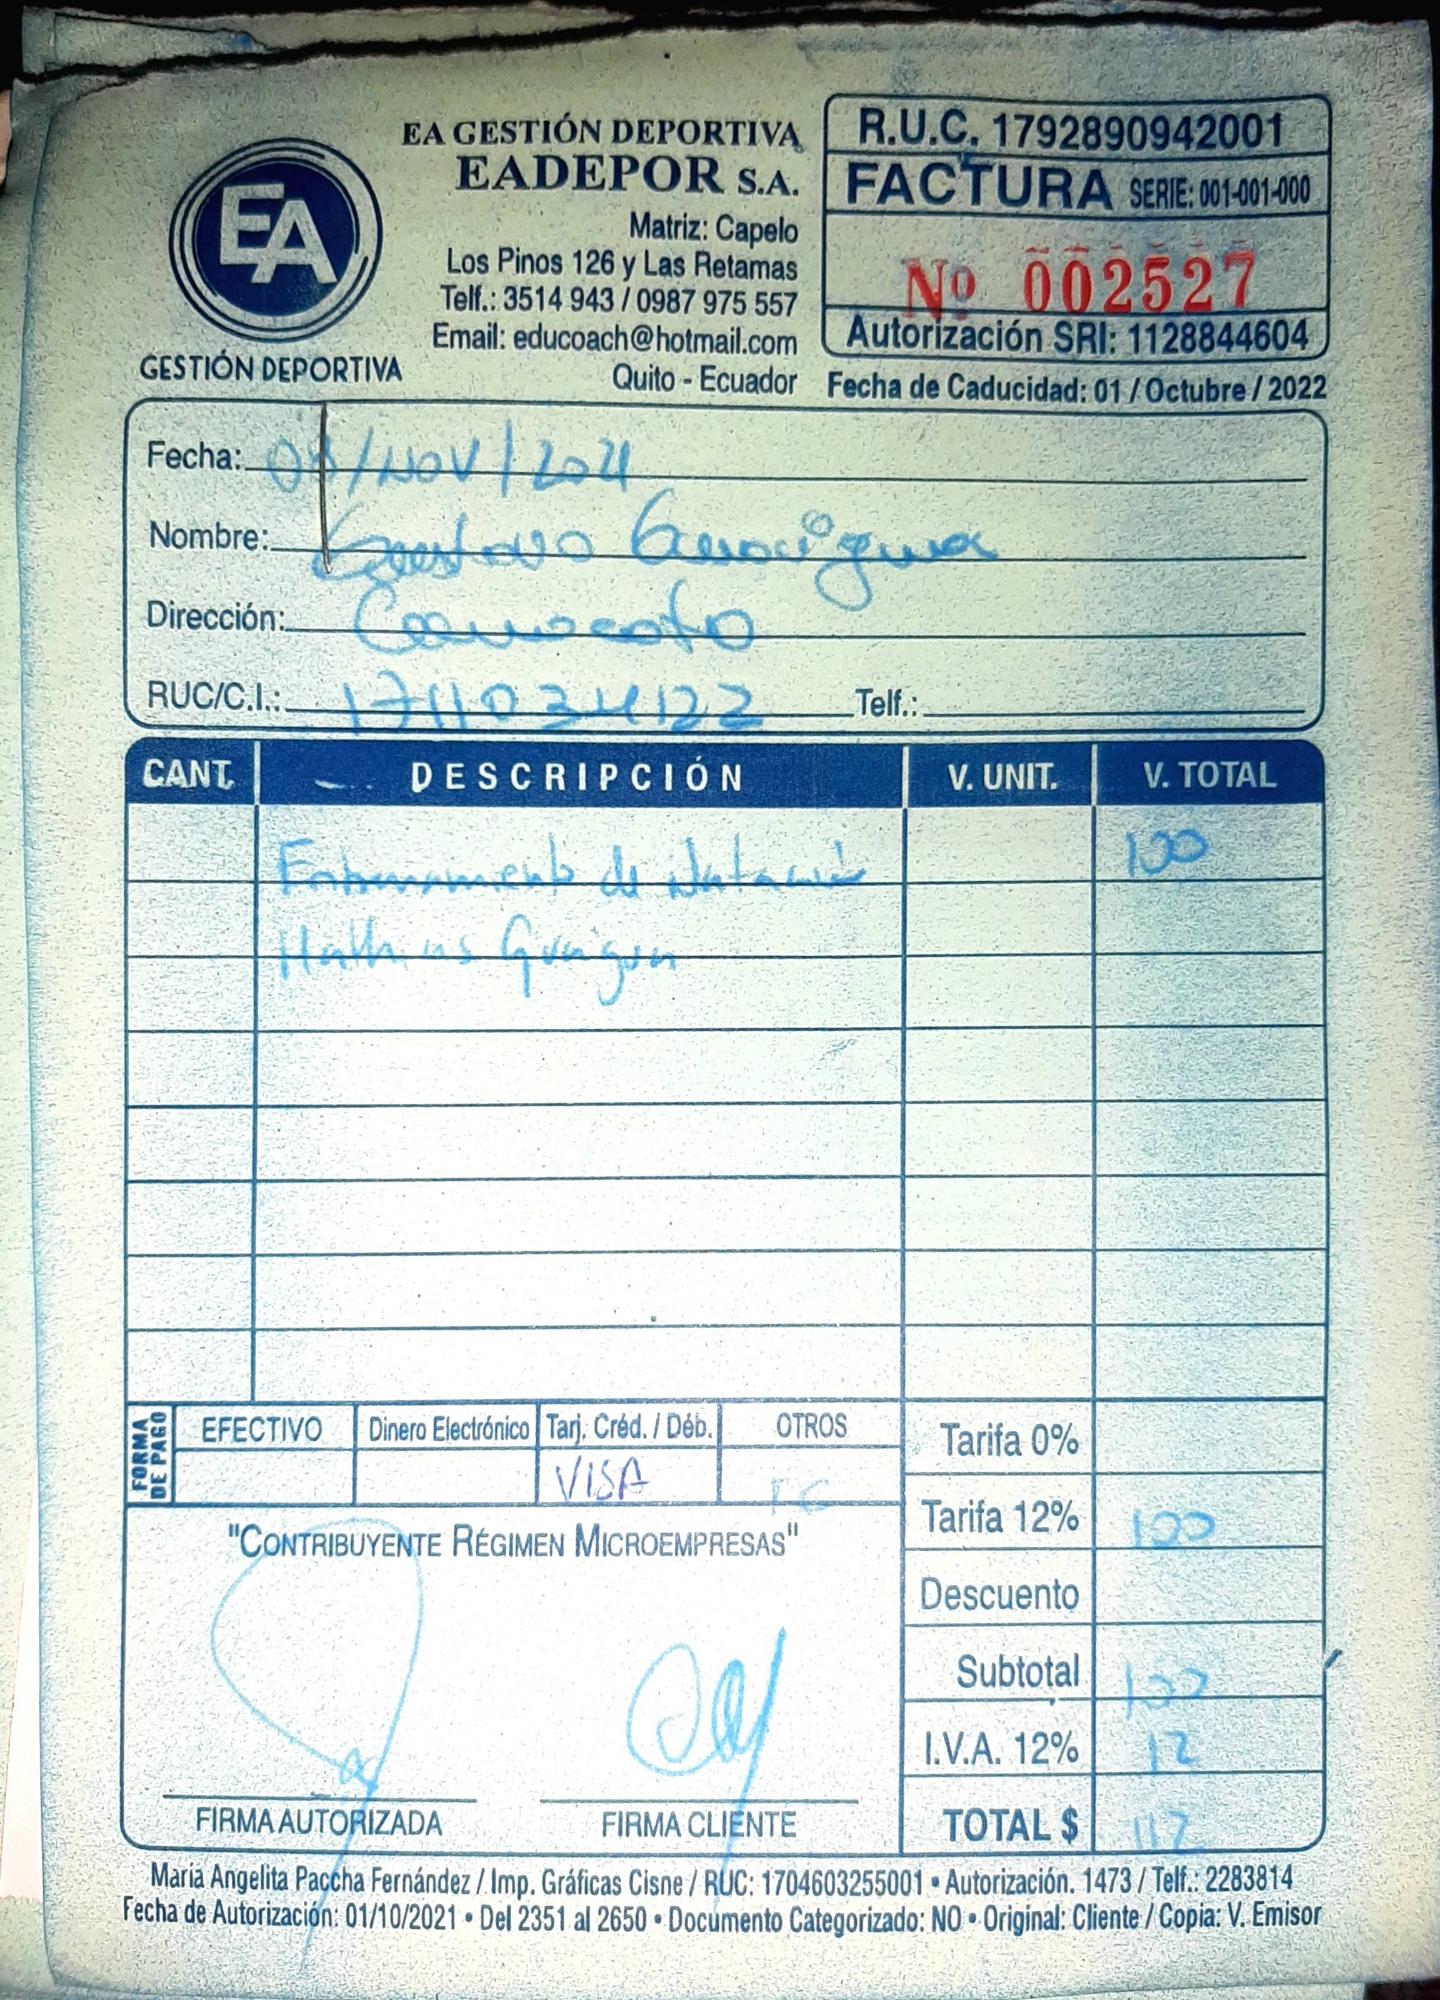 EA GESTIÓN DEPORTIVA
EADEPOR S.A.
Matriz: Capelo
Los Pinos 126 y Las Retamas
Telf.: 3514 943 / 0987 975 557
Email: educoach@hotmail.com
Quito - Ecuador
EA
GESTIÓN DEPORTIVA
R.U.C. 1792890942001
FACTURA SERIE: 001-001-000
Nº 002527
Autorización SRI: 1128844604
Fecha de Caducidad: 01 / Octubre / 2022
Fecha: 04/NOV/2021
Nombre: Gustavo
Dirección: Conocoto
RUC/C.I.: 1711034122 Telf.:
CANT. DESCRIPCIÓN V. UNIT. V. TOTAL
Entrenamiento de Natación 100
FORMA DE PAGO
EFECTIVO Dinero Electrónico Tarj. Créd. / Déb. OTROS
VISA
Tarifa 0%
Tarifa 12% 100
Descuento
Subtotal 100
I.V.A. 12% 12
TOTAL $ 112
"CONTRIBUYENTE RÉGIMEN MICROEMPRESAS"
FIRMA AUTORIZADA FIRMA CLIENTE
Maria Angelita Paccha Fernández / Imp. Gráficas Cisne / RUC: 1704603255001 • Autorización. 1473 / Telf.: 2283814
Fecha de Autorización: 01/10/2021 • Del 2351 al 2650 • Documento Categorizado: NO • Original: Cliente / Copia: V. Emisor